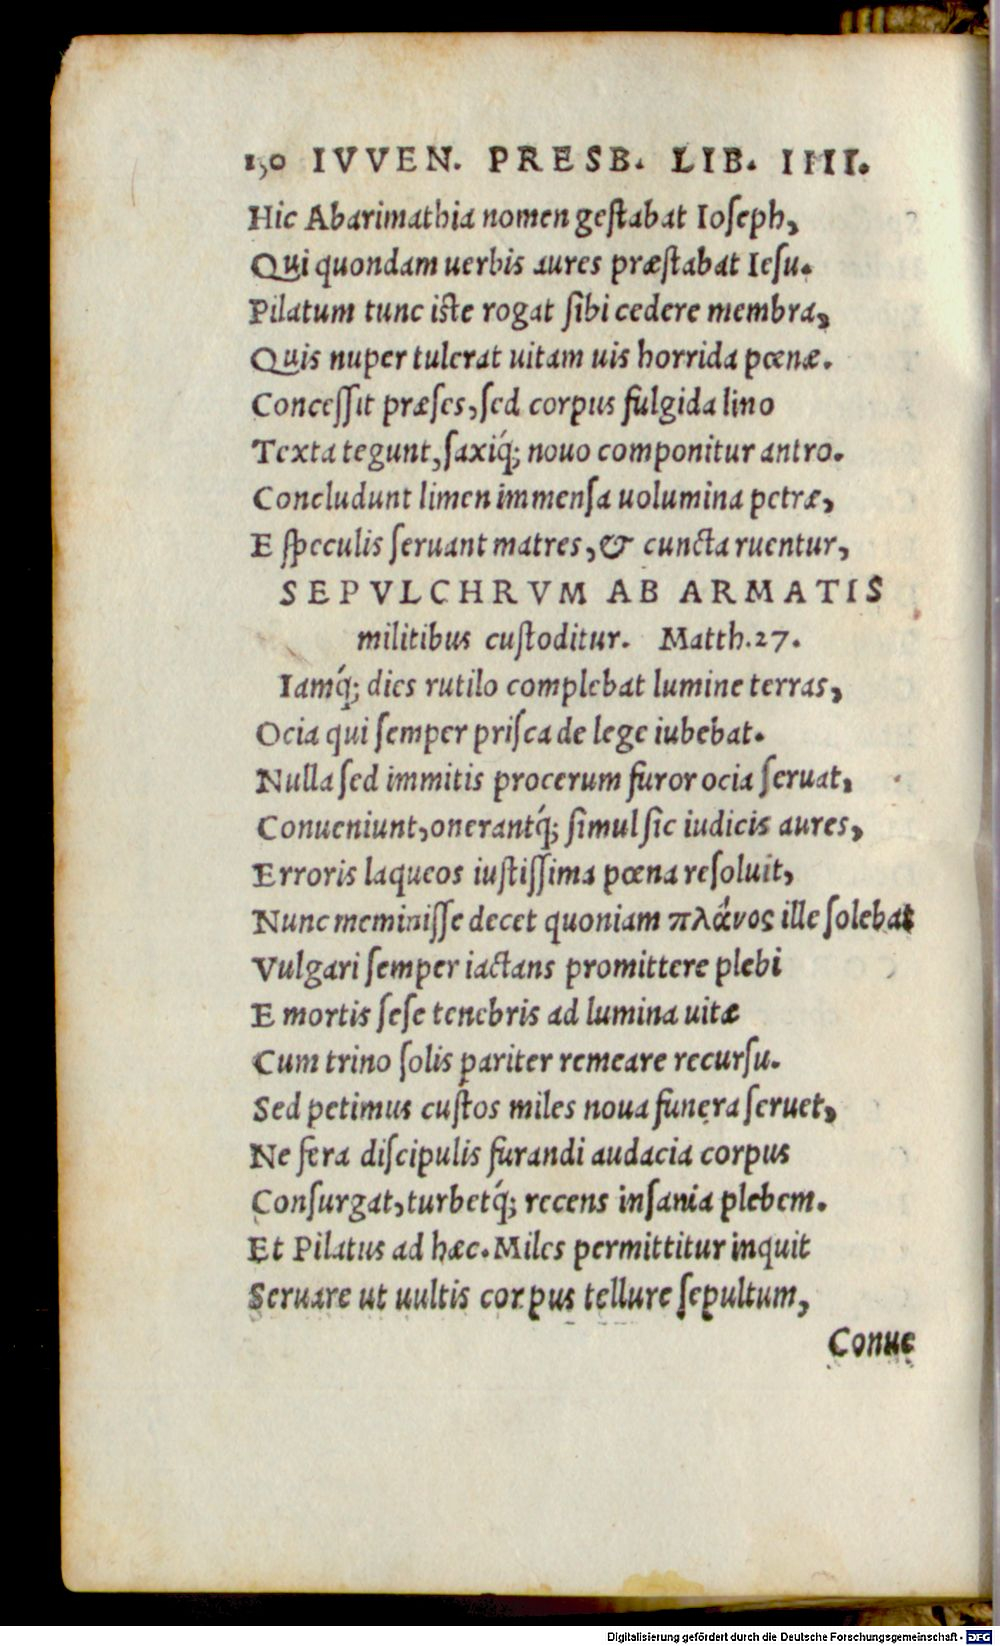 150 IVVEN. PRESB. LIB. IIII.
Hic Abarimathia nomen geſtabat Ioſeph,
Qui quondam uerbis aures præſtabat Ieſu.
Pilatum tunc iſte rogat ſibi cedere membra,
Quis nuper tulerat uitam uis horrida pœnæ.
Conceſſit præſes, ſed corpus fulgida lino
Texta tegunt, ſaxiq́; nouo componitur antro.
Concludunt limen immenſa uolumina petræ,
E ſpeculis ſeruant matres, & cuncta ruentur,
SEPVLCHRVM AB ARMATIS
militibus cuſtoditur. Matth.27.
Iamq́; dies rutilo complebat lumine terras,
Ocia qui ſemper priſca de lege iubebat.
Nulla ſed immitis procerum furor ocia ſeruat,
Conueniunt, onerantq́; ſimul ſic iudicis aures,
Erroris laqueos iuſtiſſima pœna reſoluit,
Nunc meminiſſe decet quoniam πλάνος ille ſolebat
Vulgari ſemper iactans promittere plebi
E mortis ſeſe tenebris ad lumina uitæ
Cum trino ſolis pariter remeare recurſu.
Sed petimus cuſtos miles noua funera ſeruet,
Ne fera diſcipulis furandi audacia corpus
Conſurgat, turbetq́; recens inſania plebem.
Et Pilatus ad hæc. Miles permittitur inquit
Seruare ut uultis corpus tellure ſepultum,
Conue
Digitalisierung gefördert durch die Deutsche Forschungsgemeinschaft - DFG